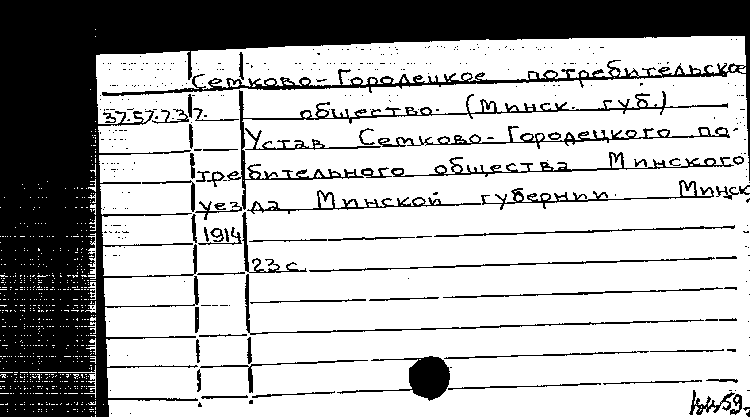 Сетково-Городецкое потребительское
37.57.7.37. общество. (Минск. губ.)
Устав Сетково-Городецкого по-
требительного общества Минского
уезда, Минской губернии. Минск
1914
23 с.